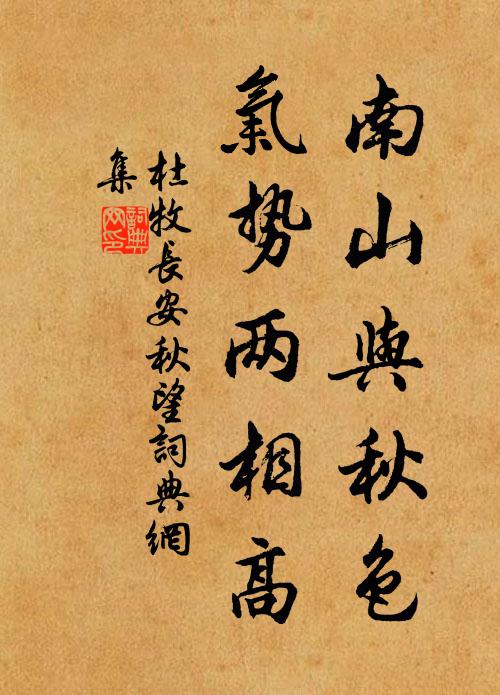 南山與秋色
氣勢两相高
杜牧長安秋望詞典網
集
詞典
网印